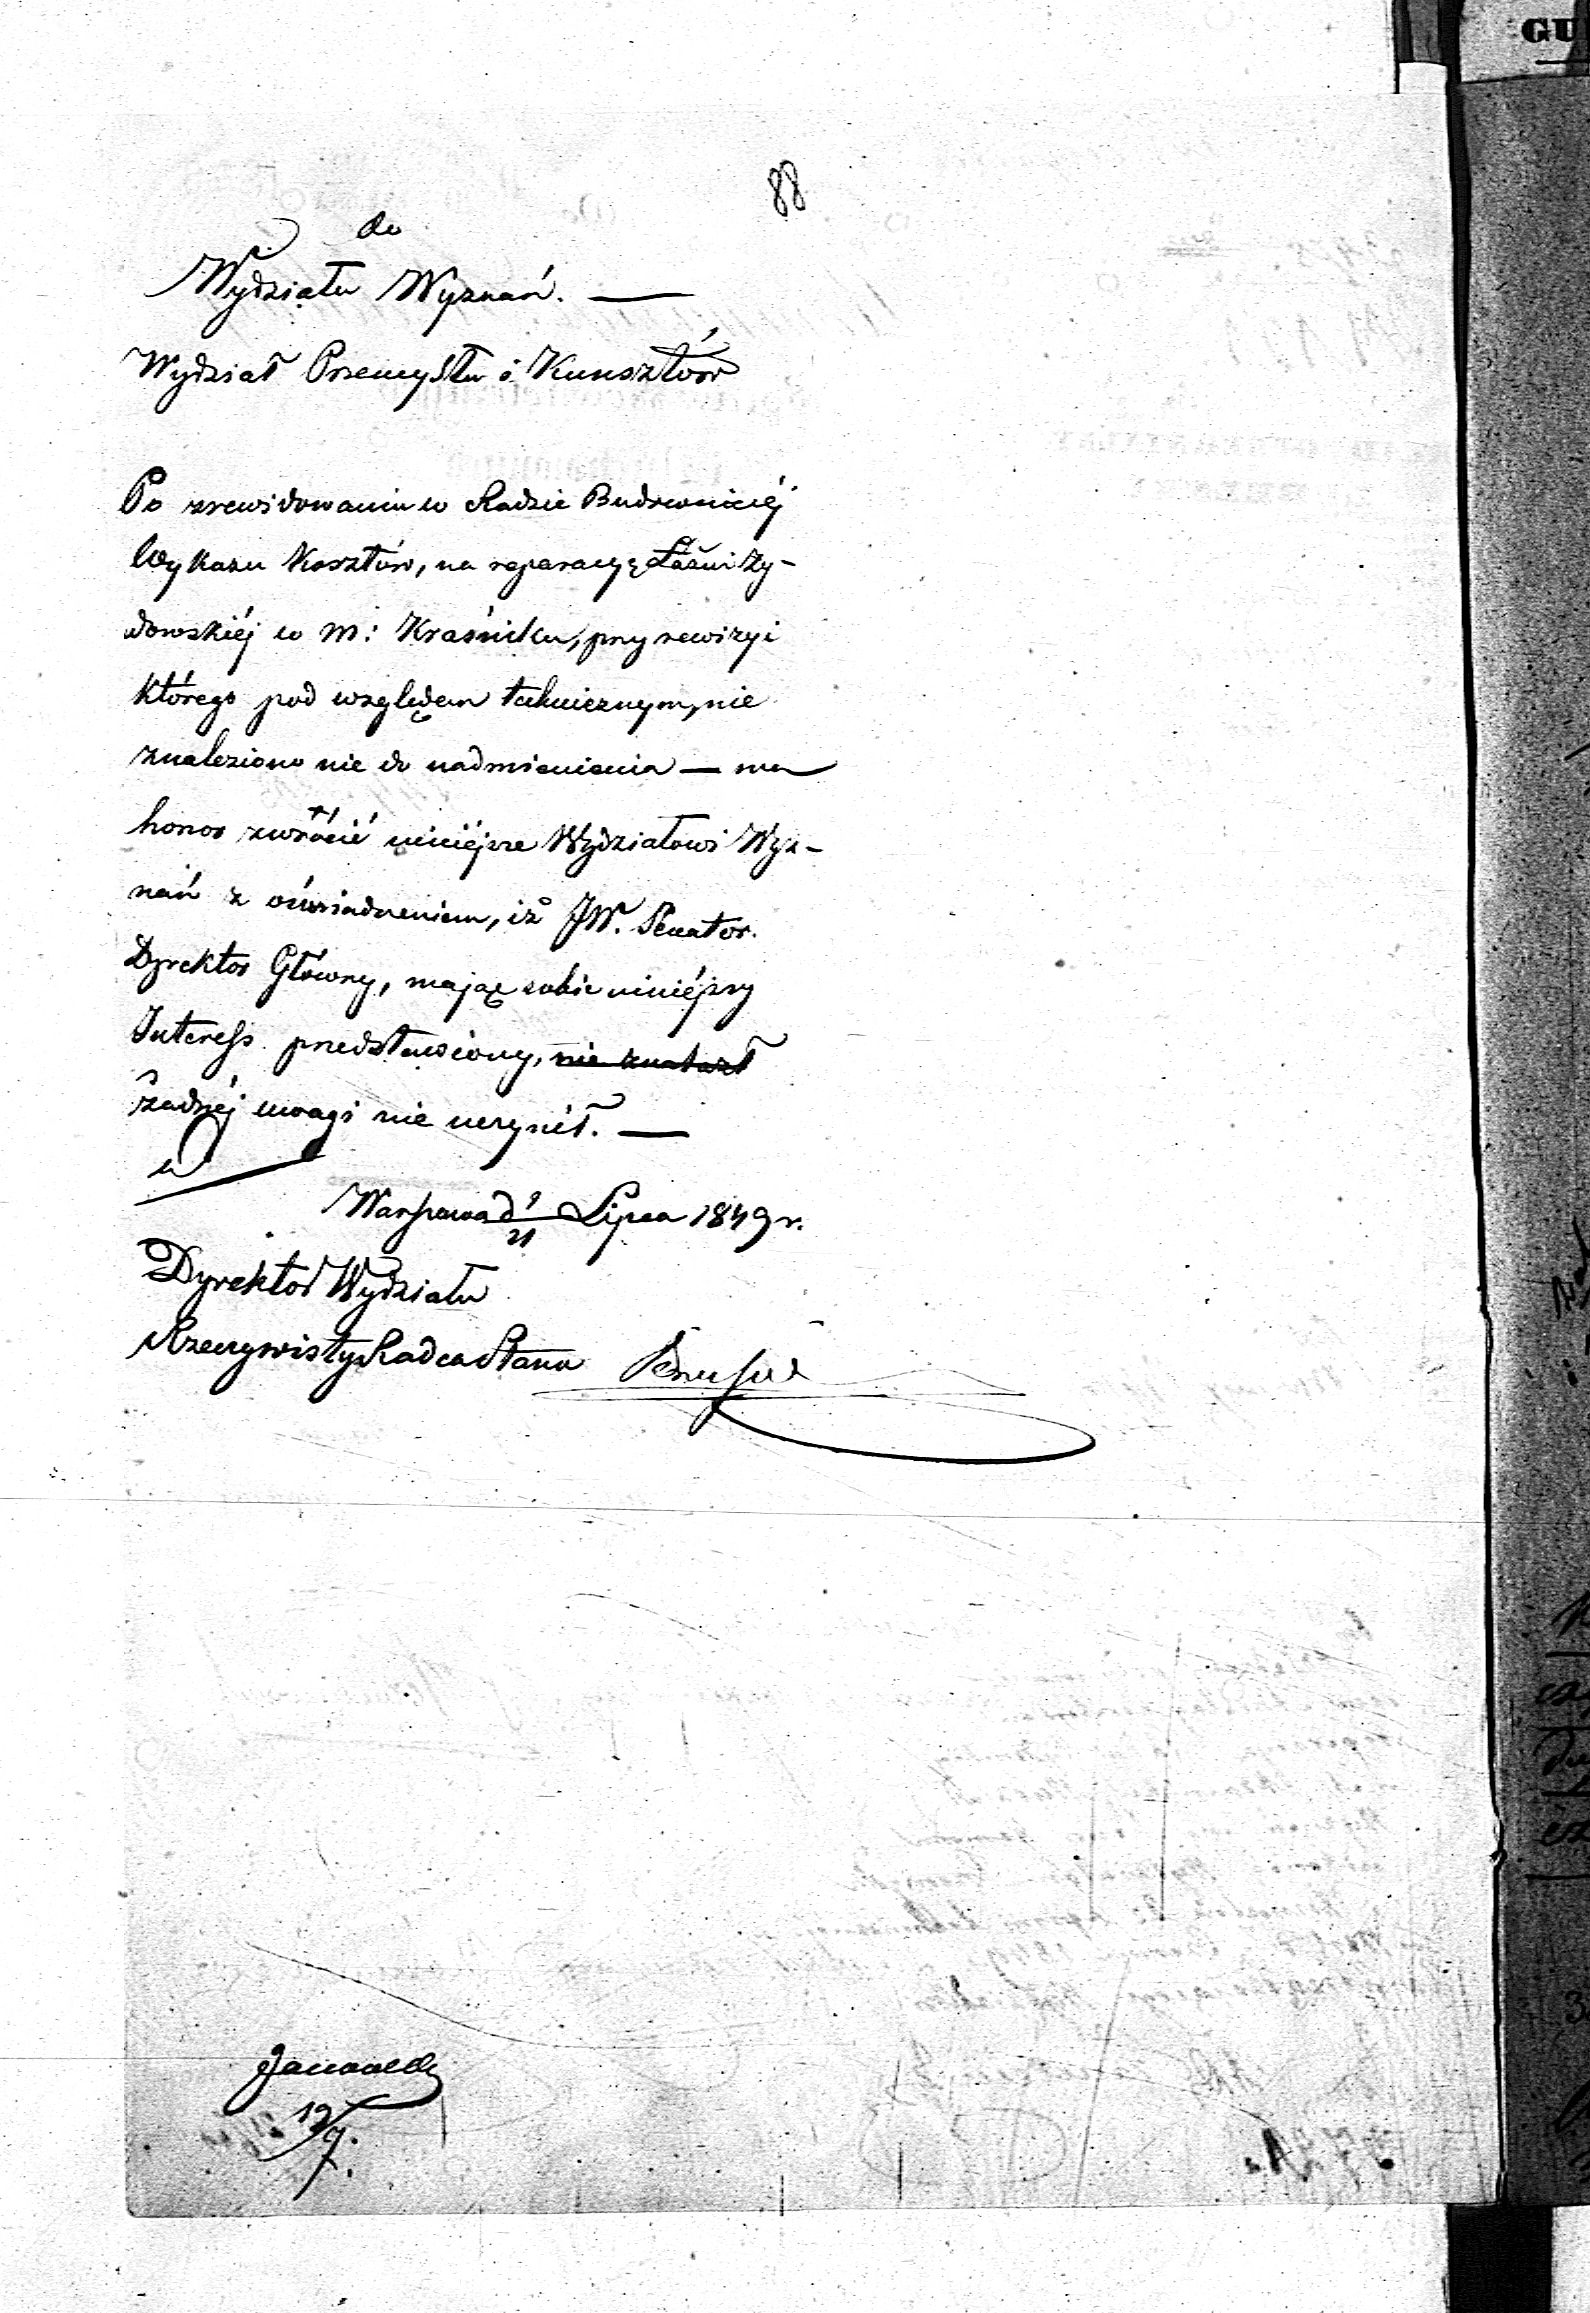 88
do
Wydziału Wyznań. —
Wydział Przemysłu i Kunsztów
Po zrewidowaniu w Radzie Budowniczéj
Wykazu Kosztów, na reparacyę Łaźni Ży-
dowskiéj w m: Kraśniku, przy rewizyi
którego pod względem technicznym, nie
znaleziono nic do nadmienienia — ma
honor zwrócić niniéjsze Wydziałowi Wyz-
nań z oświadczeniem, iż JW. Senator
Dyrektor Główny, mając sobie niniéjszy
Interess przedstawiony, nie znalazł
żadnéj uwagi nie uczynił. —
Warszawa d 9/21 Lipca 1849 r.
Dyrektor Wydziału
Rzeczywisty Radca Stanu
19/7.
GU